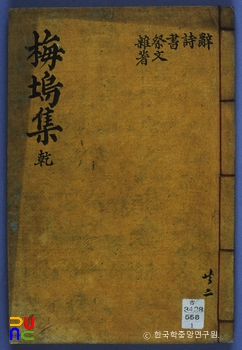 辭
詩
書
祭文
雜著
梅塢集 乾
共二
3428
558
1
ⓒ 한국학중앙연구원